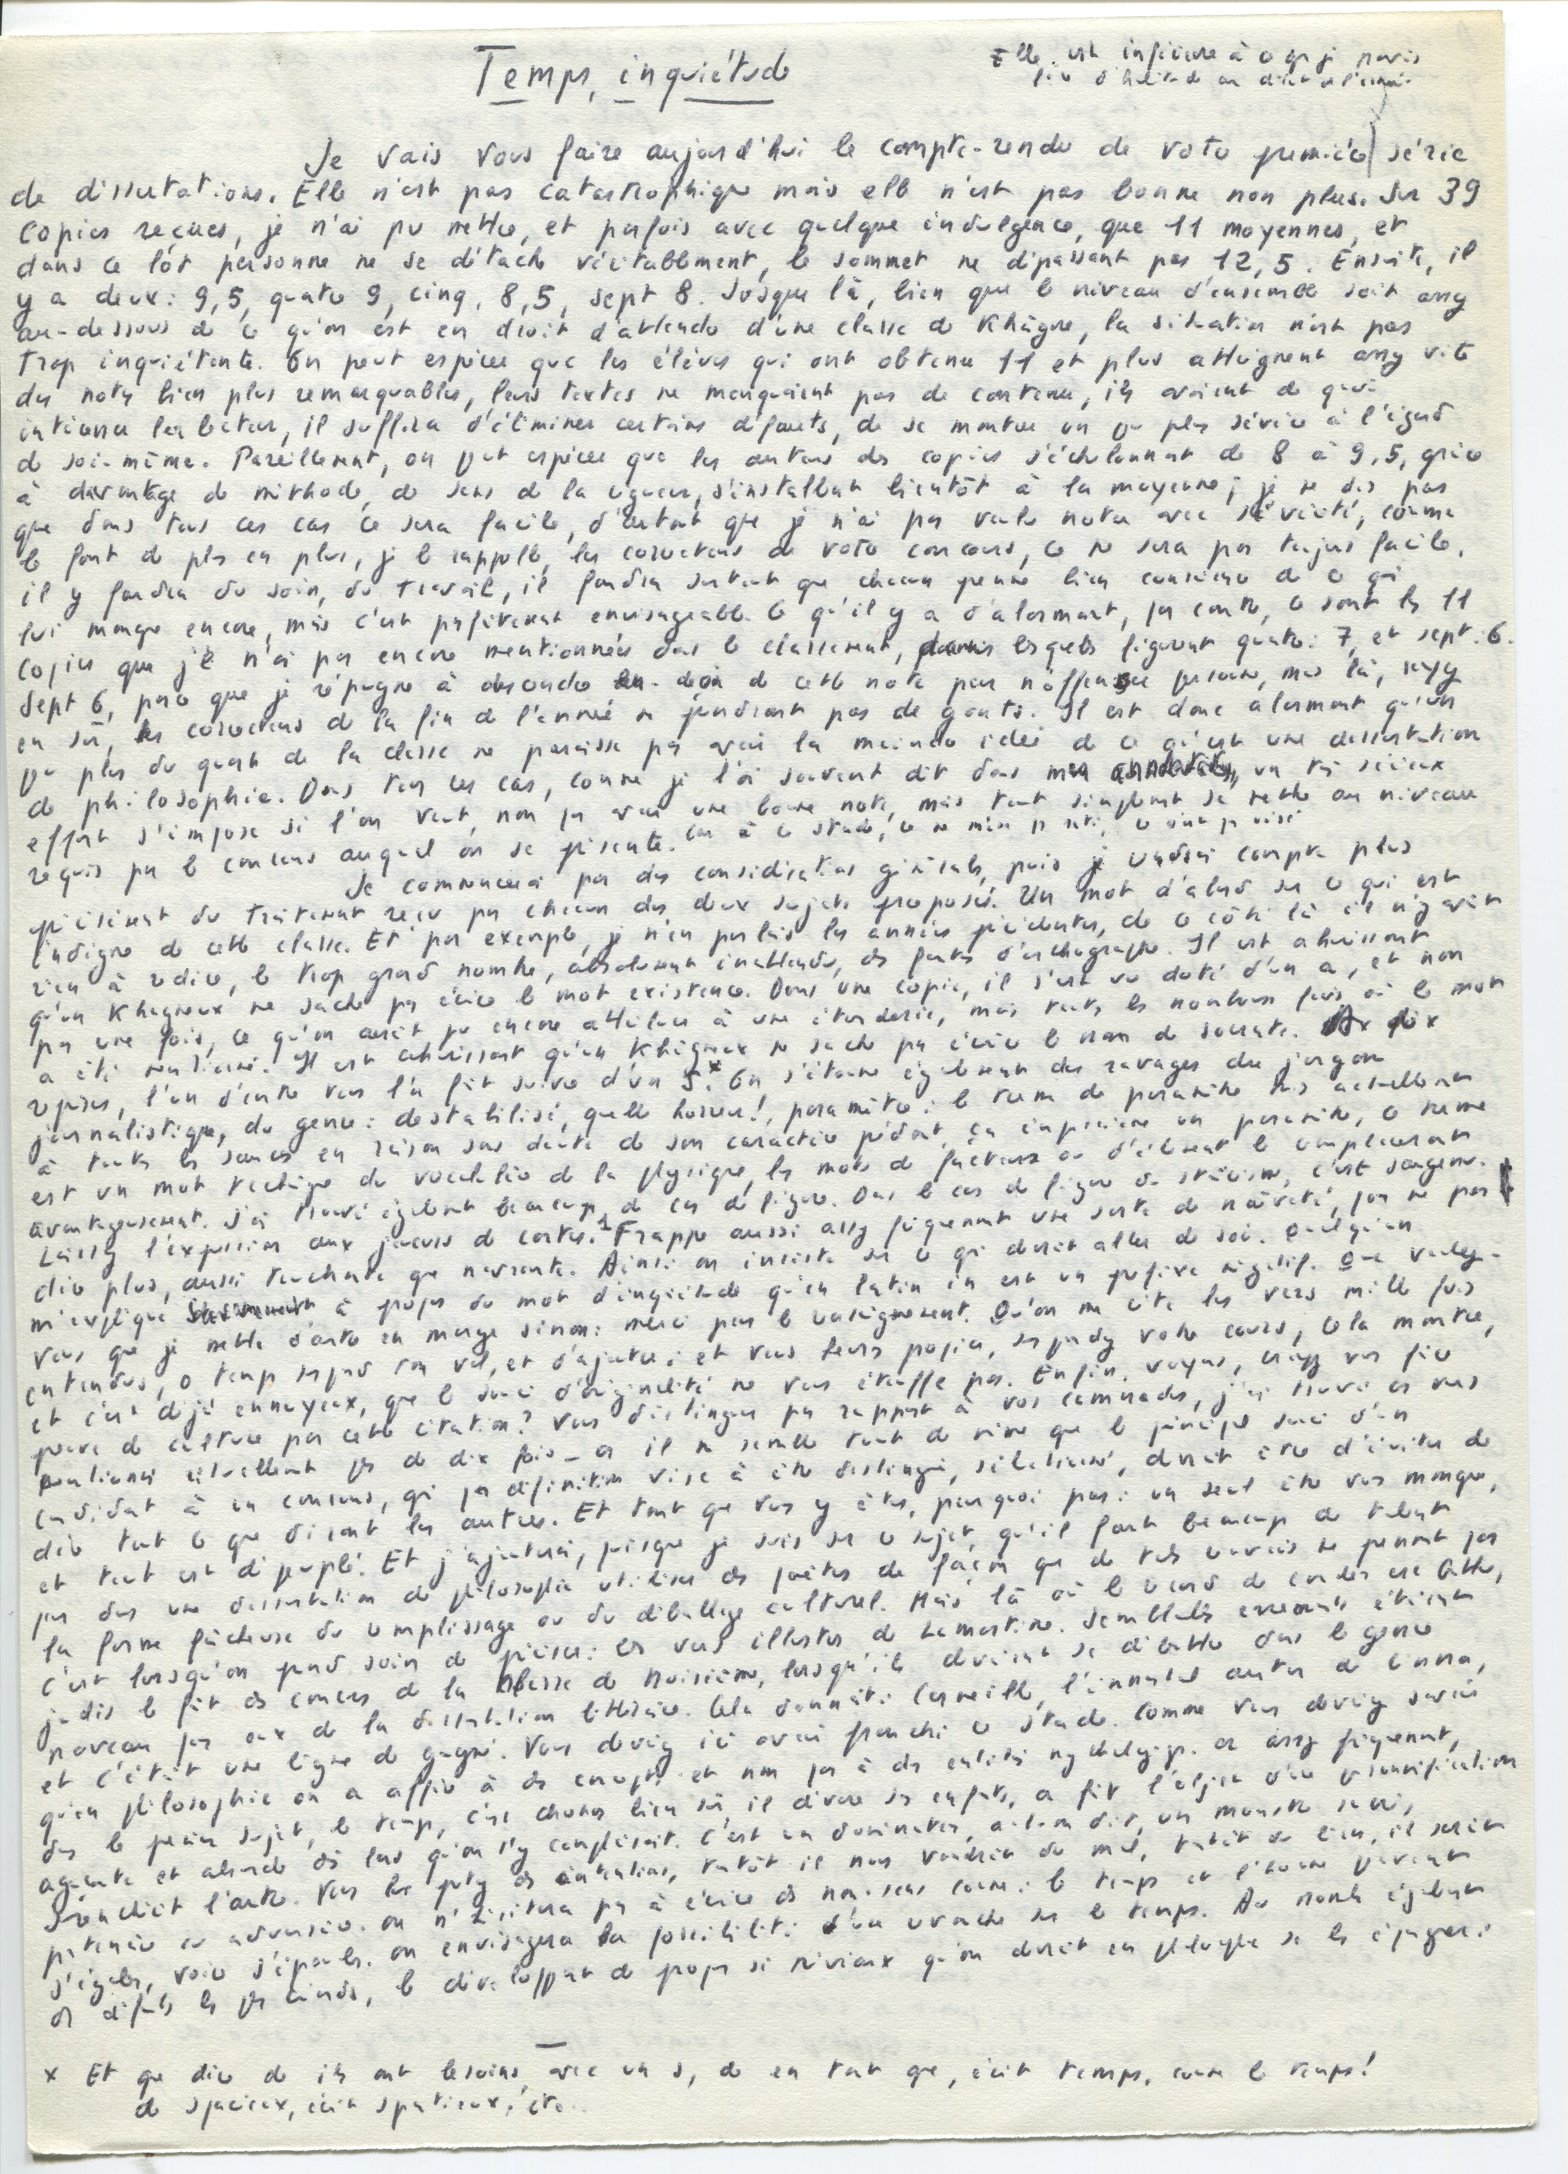 Temps, inquiétude
Elle est inférieure à ce que je
Je vais vous faire aujourd'hui le compte-rendu de votre première série
de dissertations. Elle n'est pas catastrophique mais elle n'est pas bonne non plus. Sur 39
copies reçues, je n'ai pu mettre, et parfois avec quelque indulgence, que 11 moyennes, et
dans ce lot personne ne se détache véritablement, le sommet ne dépassant pas 12,5. Ensuite, il
y a deux : 9,5, quatre 9, cinq, 8,5, sept 8. Jusque là, bien que le niveau d'ensemble soit assez
au-dessous de ce qu'on est en droit d'attendre d'une classe de Khâgne, la situation n'est pas
trop inquiétante. On peut espérer que les élèves qui ont obtenu 11 et plus atteignent assez vite
des notes bien plus remarquables, leurs textes ne manquaient pas de contenu, ils avaient de quoi
intéresser les lecteurs, il suffira d'éliminer certains défauts, de se montrer un peu plus sévère à l'égard
de soi-même. Pareillement, on peut espérer que les auteurs des copies s'échelonnant de 8 à 9,5, grâce
à davantage de méthode, de sens de la rigueur, s'installent bientôt à la moyenne ; je ne dis pas
que dans tous ces cas ce sera facile, d'autant que je n'ai pas voulu noter avec sévérité, comme
le font de plus en plus, je le rappelle, les correcteurs de votre concours, ce ne sera pas toujours facile,
il y faudra du soin, du travail, il faudra surtout que chacun prenne bien conscience de ce qui
lui manque encore, mais c'est parfaitement envisageable. Ce qu'il y a d'alarmant, par contre, ce sont les 11
copies que je n'ai pas encore mentionnées dans le classement, parmi lesquelles figurent quatre : 7, et sept : 6.
Sept 6, parce que je répugne à descendre au-delà de cette note pour n'offenser personne, mais là, soyez
en sûr, les correcteurs de la fin de l'année ne prendront pas de gants. Il est donc alarmant qu'un
peu plus du quart de la classe ne paraisse pas avoir la moindre idée de ce qu'est une dissertation
de philosophie. Dans tous ces cas, comme je l'ai souvent dit dans mes annotations, un très sérieux
effort s'impose si l'on veut, non pas avoir une bonne note, mais tout simplement se mettre au niveau
requis par le concours auquel on se présente. Car à ce stade, ce ne
Je commencerai par des considérations générales, puis je rendrai compte plus
précisément du traitement reçu par chacun des deux sujets proposés. Un mot d'abord sur ce qui est
indigne de cette classe. Et par exemple, je n'en parlais les années précédentes, de ce côté là il n'y avait
rien à redire, le trop grand nombre, absolument inattendu, des fautes d'orthographe. Il est ahurissant
qu'un Khâgneux ne sache pas écrire le mot existence. Dans une copie, il s'est vu doté d'un a, et non
pas une fois, ce qu'on aurait pu encore attribuer à une étourderie, mais toutes les nombreuses fois où le mot
a été mentionné. Il est ahurissant qu'un Khâgneux ne sache pas écrire le nom de Socrate. Dix fois
reprises, l'un d'entre vous l'a fait suivre d'un S.x On s'étonne également des ravages du jargon
journalistique, du genre : déstabilisé, quelle horreur !, paramètre : le terme de paramètre mis actuellement
à toutes les sauces en raison sans doute de son caractère pédant, ça impressionne un paramètre, ce terme
est un mot technique du vocabulaire de la physique, les mots de facteurs ou d'élément le remplaceront
avantageusement. J'ai trouvé également beaucoup de cas de figure. Dans le cas de figure du stoïcisme, c'est
Laissez l'expression aux joueurs de cartes.1 Frappe aussi assez fréquemment une sorte de naïveté, pour ne pas
dire plus, aussi touchante que navrante. Ainsi on insiste sur ce qui devrait aller de soi. Quelqu'un
m'explique à propos du mot d'inquiétude qu'en latin in est un préfixe négatif. Que voulez-
vous que je mette d'autre en marge sinon : merci pour le renseignement. Qu'on me cite les vers mille fois
entendus, ô temps suspend ton vol, et d'ajouter : et vous heures propices, suspendez votre cours, cela montre,
et c'est déjà ennuyeux, que le souci d'originalité ne vous étouffe pas. Enfin, voyons, croyez vous faire
preuve de culture par cette citation ? Vous distinguer par rapport à vos camarades, j'ai trouvé ces vers
mentionnés plus de dix fois - or il me semble tout de même que le principal souci d'un
candidat à un concours, qui par définition vise à être distingué, sélectionné, devrait être d'éviter de
dire tout ce que disent les autres. Et tant que vous y êtes, pourquoi pas : un seul être vous manque,
et tout est dépeuplé. Et j'ajouterai, puisque je suis sur ce sujet, qu'il faut beaucoup de talent
pour dans une dissertation de philosophie utiliser des poètes de façon que de tels renvois ne prennent pas
la forme fâcheuse du remplissage ou du déballage culturel. Mais là où le
c'est lorsqu'on prend soin de préciser : les vers illustres de Lamartine. Semblables errements étaient
jadis le fait des élèves de la classe de troisième, lorsqu'ils devaient se débattre dans le genre
nouveau pour eux de la dissertation littéraire. Cela donnait : Corneille, l'immortel auteur de Cinna,
et c'était une ligne de gagné. Vous devriez ici avoir franchi ce stade. Comme vous devriez savoir
qu'en philosophie on a affaire à des concepts et non pas à des entités mythologiques. Or assez fréquemment,
dans le premier sujet, le temps, c'est chronos bien sûr, il dévore ses enfants, a fait l'objet d'une personnification
agaçante et absurde dès lors qu'on s'y complaisait. C'est un dominateur,
Vous lui prêtez des intentions, tantôt il nous voudrait du mal, tantôt du bien, il serait
partenaire ou adversaire. On n'hésitera pas à écrire des non-sens comme : le temps et l'homme peuvent
s'égaler, voire s'épauler. On envisagera la possibilité d'une revanche sur le temps. Au nombre également
des défauts les plus, le développement de propos si triviaux qu'on devrait en philosophie se les épargner :
x Et que dire de ils ont besoins, avec un s, de en tant que, écrit temps, comme le temps !
de spacieux, écrit spatieux, etc.